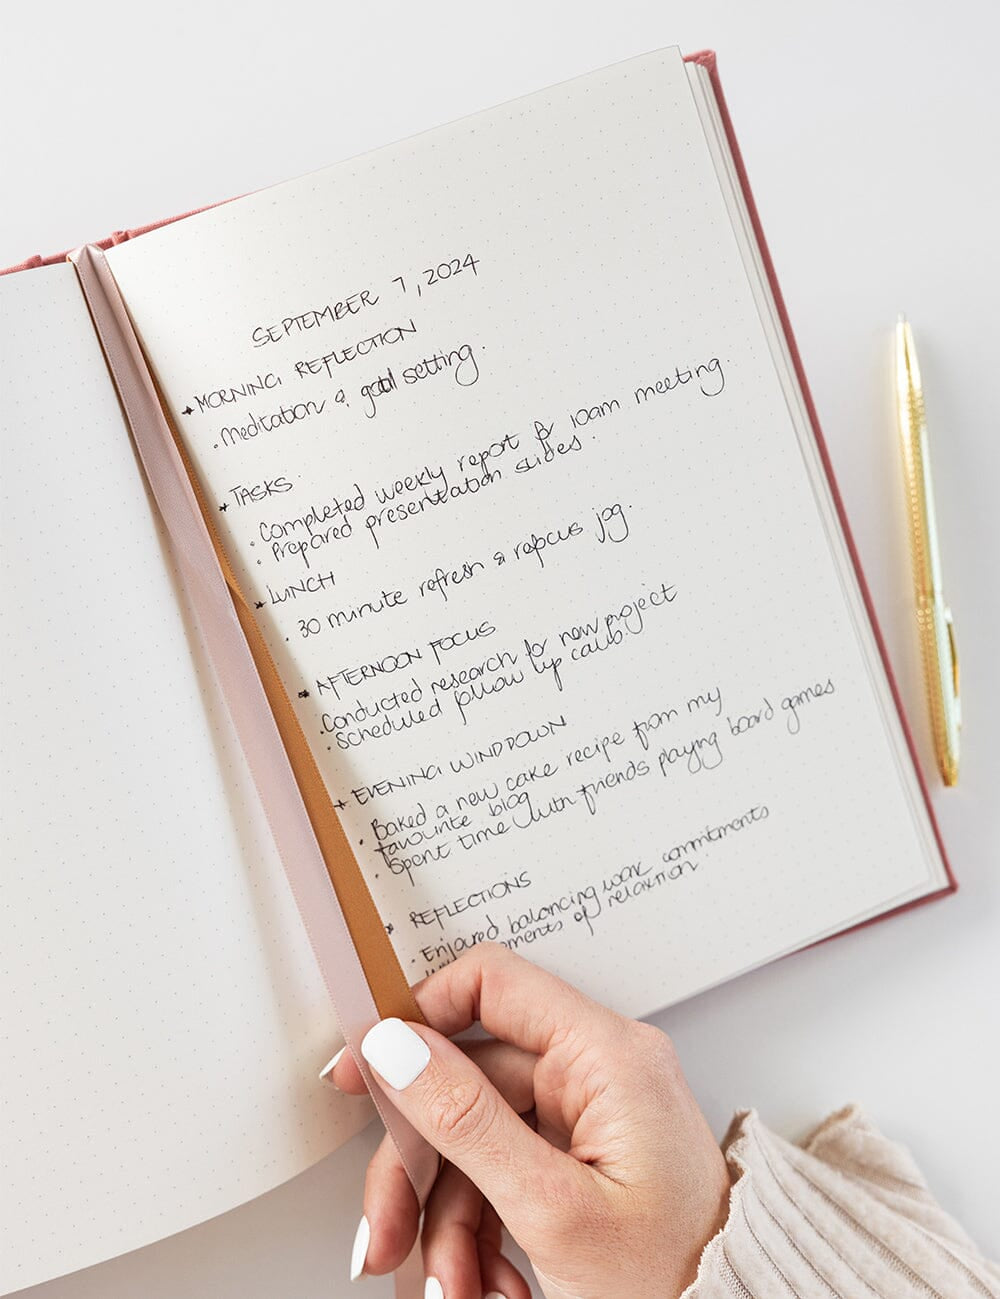 SEPTEMBER 7, 2024
MORNING REFLECTION
. Meditation & goal setting.
TASKS
. Completed weekly report for 10am meeting.
. Prepared presentation slides.
LUNCH
. 30 minute refresh & refocus jog.
AFTERNOON FOCUS
. Conducted research for new project
. Scheduled follow up calls.
EVENING WINDDOWN
. Baked a new cake recipe from my
favourite blog
. Spent time with friends playing board games
REFLECTIONS
. Enjoyed balancing work commitments
of relaxation